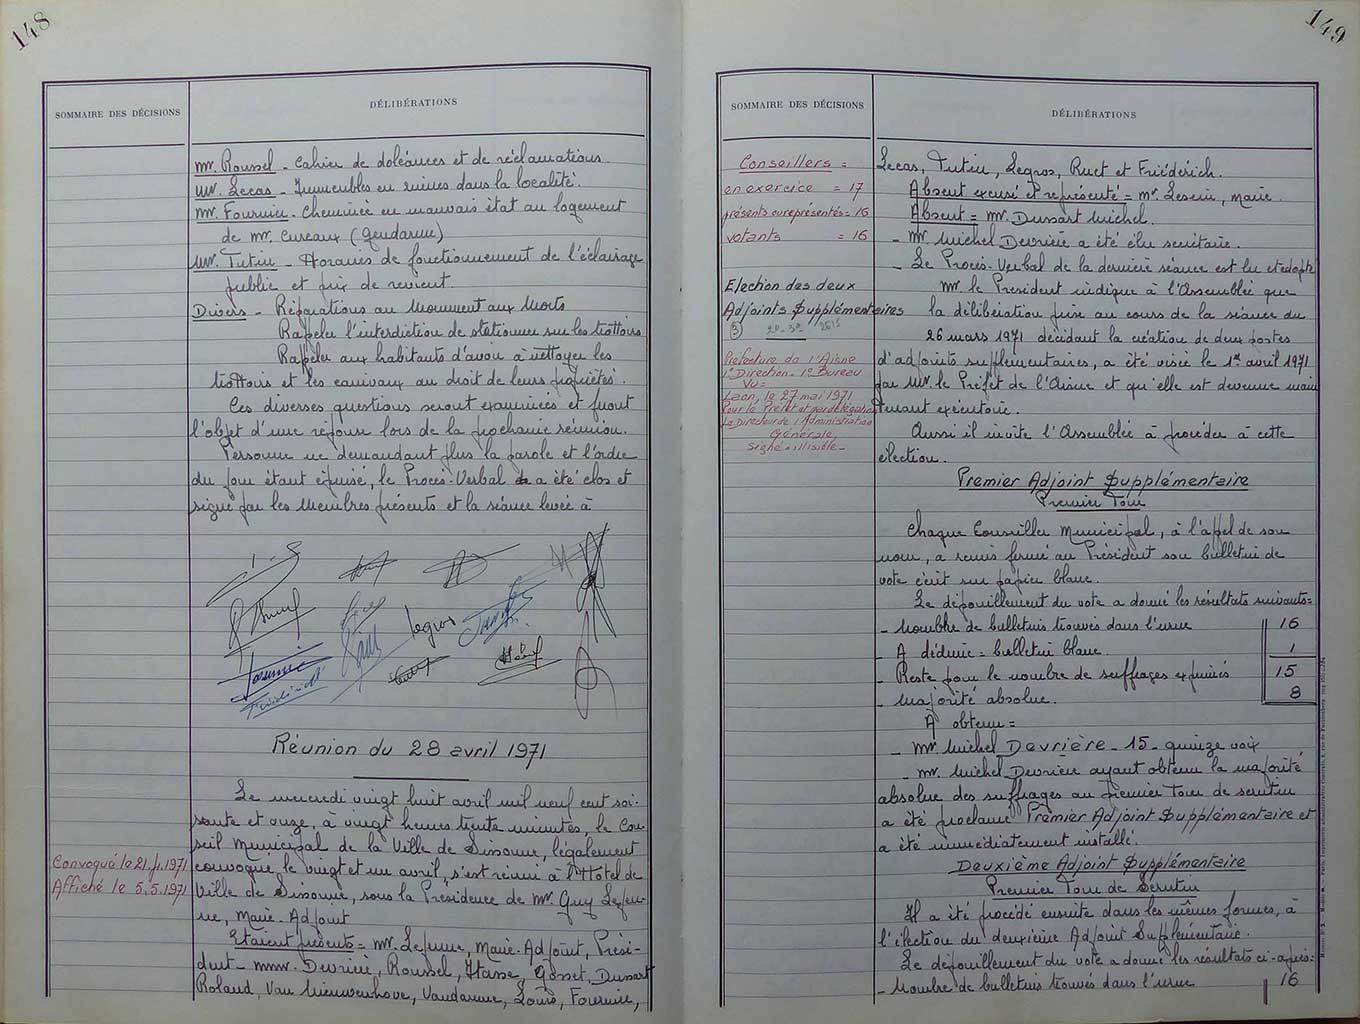 148
SOMMAIRE DES DÉCISIONS
DÉLIBÉRATIONS
Mr. Roussel - Cahier de doléances et de réclamations.
Mr. Lecas - Immeubles en ruines dans la localité.
Mr. Fournier - Cheminée en mauvais état au logement
de Mr. Cureaux (Gendarme)
Mr. Tutin - Horaires de fonctionnement de l'éclairage
public et prix de revient.
Divers - Réparations au Monument aux Morts
Rappeler l'interdiction de stationner sur les trottoirs
Rappeler aux habitants d'avoir à nettoyer les
trottoirs et les caniveaux au droit de leurs propriétés.
Ces diverses questions seront examinées et feront
l'objet d'une réponse lors de la prochaine réunion.
Personne ne demandant plus la parole et l'ordre
du jour étant épuisé, le Procès-Verbal a été clos et
signé par les Membres présents et la séance levée à
legros
Réunion du 28 avril 1971
Le mercredi vingt huit avril mil neuf cent soi-
xante et onze, à vingt heures trente minutes, le Con
seil Municipal de la Ville de Sissonne, légalement
convoqué le vingt et un avril, s'est réuni à l'Hôtel de
Ville de Sissonne, sous la Présidence de Mr. Guy
Maire-Adjoint
Convoqué le 21.4.1971
Affiché le 5.5.1971
Etaient présents = Mr. Maire-Adjoint, Prési-
dent - MMr. Devrière, Roussel, Hasse, Gosset, Dussart
Roland, Van Nieuwenhove, Vandamme, Louis, Fournier,
149
SOMMAIRE DES DÉCISIONS
DÉLIBÉRATIONS
Conseillers =
en exercice = 17
présents ou représentés = 16
votants = 16
Election des deux
Adjoints Supplémentaires
(3)
Préfecture de l'Aisne
1° Direction - 1° Bureau
Vu =
Laon, le 27 mai 1971
Pour le Préfet et par délégation
Le Directeur de l'Administration
Générale,
Signé = illisible -
Lecas, Tutin, Legros, Ruet et Friédérich.
Absent excusé et représenté = Mr. Maire.
Absent = Mr. Dussart Michel.
- Mr. Michel Devrière a été élu secrétaire.
- Le Procès-Verbal de la dernière séance est lu et adopté
Mr. le Président indique à l'Assemblée que
la délibération prise au cours de la séance du
26 mars 1971 décidant la création de deux postes
d'adjoints supplémentaires, a été visée le 1er avril 1971
par Mr. le Préfet de l'Aisne et qu'elle est devenue main
tenant exécutoire.
Aussi il invite l'Assemblée à procéder à cette
élection.
Premier Adjoint Supplémentaire
Premier Tour
Chaque Conseiller Municipal, à l'appel de son
nom, a remis fermé au Président son bulletin de
vote écrit sur papier blanc.
Le dépouillement du vote a donné les résultats suivants =
- Nombre de bulletins trouvés dans l'urne 16
- A déduire = bulletin blanc. 1
- Reste pour le nombre de suffrages exprimés 15
- Majorité absolue. 8
A obtenu =
- Mr. Michel Devrière - 15 - quinze voix
- Mr. Michel Devrière ayant obtenu la majorité
absolue des suffrages au premier tour de scrutin
a été proclamé Premier Adjoint Supplémentaire et
a été immédiatement installé.
Deuxième Adjoint Supplémentaire
Premier Tour de Scrutin
Il a été procédé ensuite dans les mêmes formes, à
l'élection du deuxième Adjoint Supplémentaire.
Le dépouillement du vote a donné les résultats ci-après =
- Nombre de bulletins trouvés dans l'urne 16